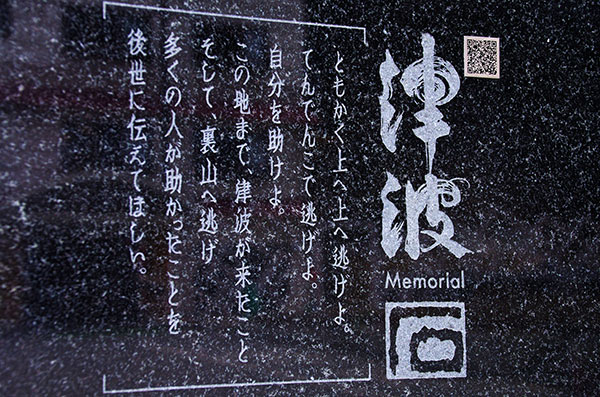 津波
Memorial
石
ともかく上へ上へ逃げよ。
てんでんこで逃げよ。
自分を助けよ。
この地まで、津波が来たこと
そして、裏山へ逃げ
多くの人が助かったことを
後世に伝えてほしい。